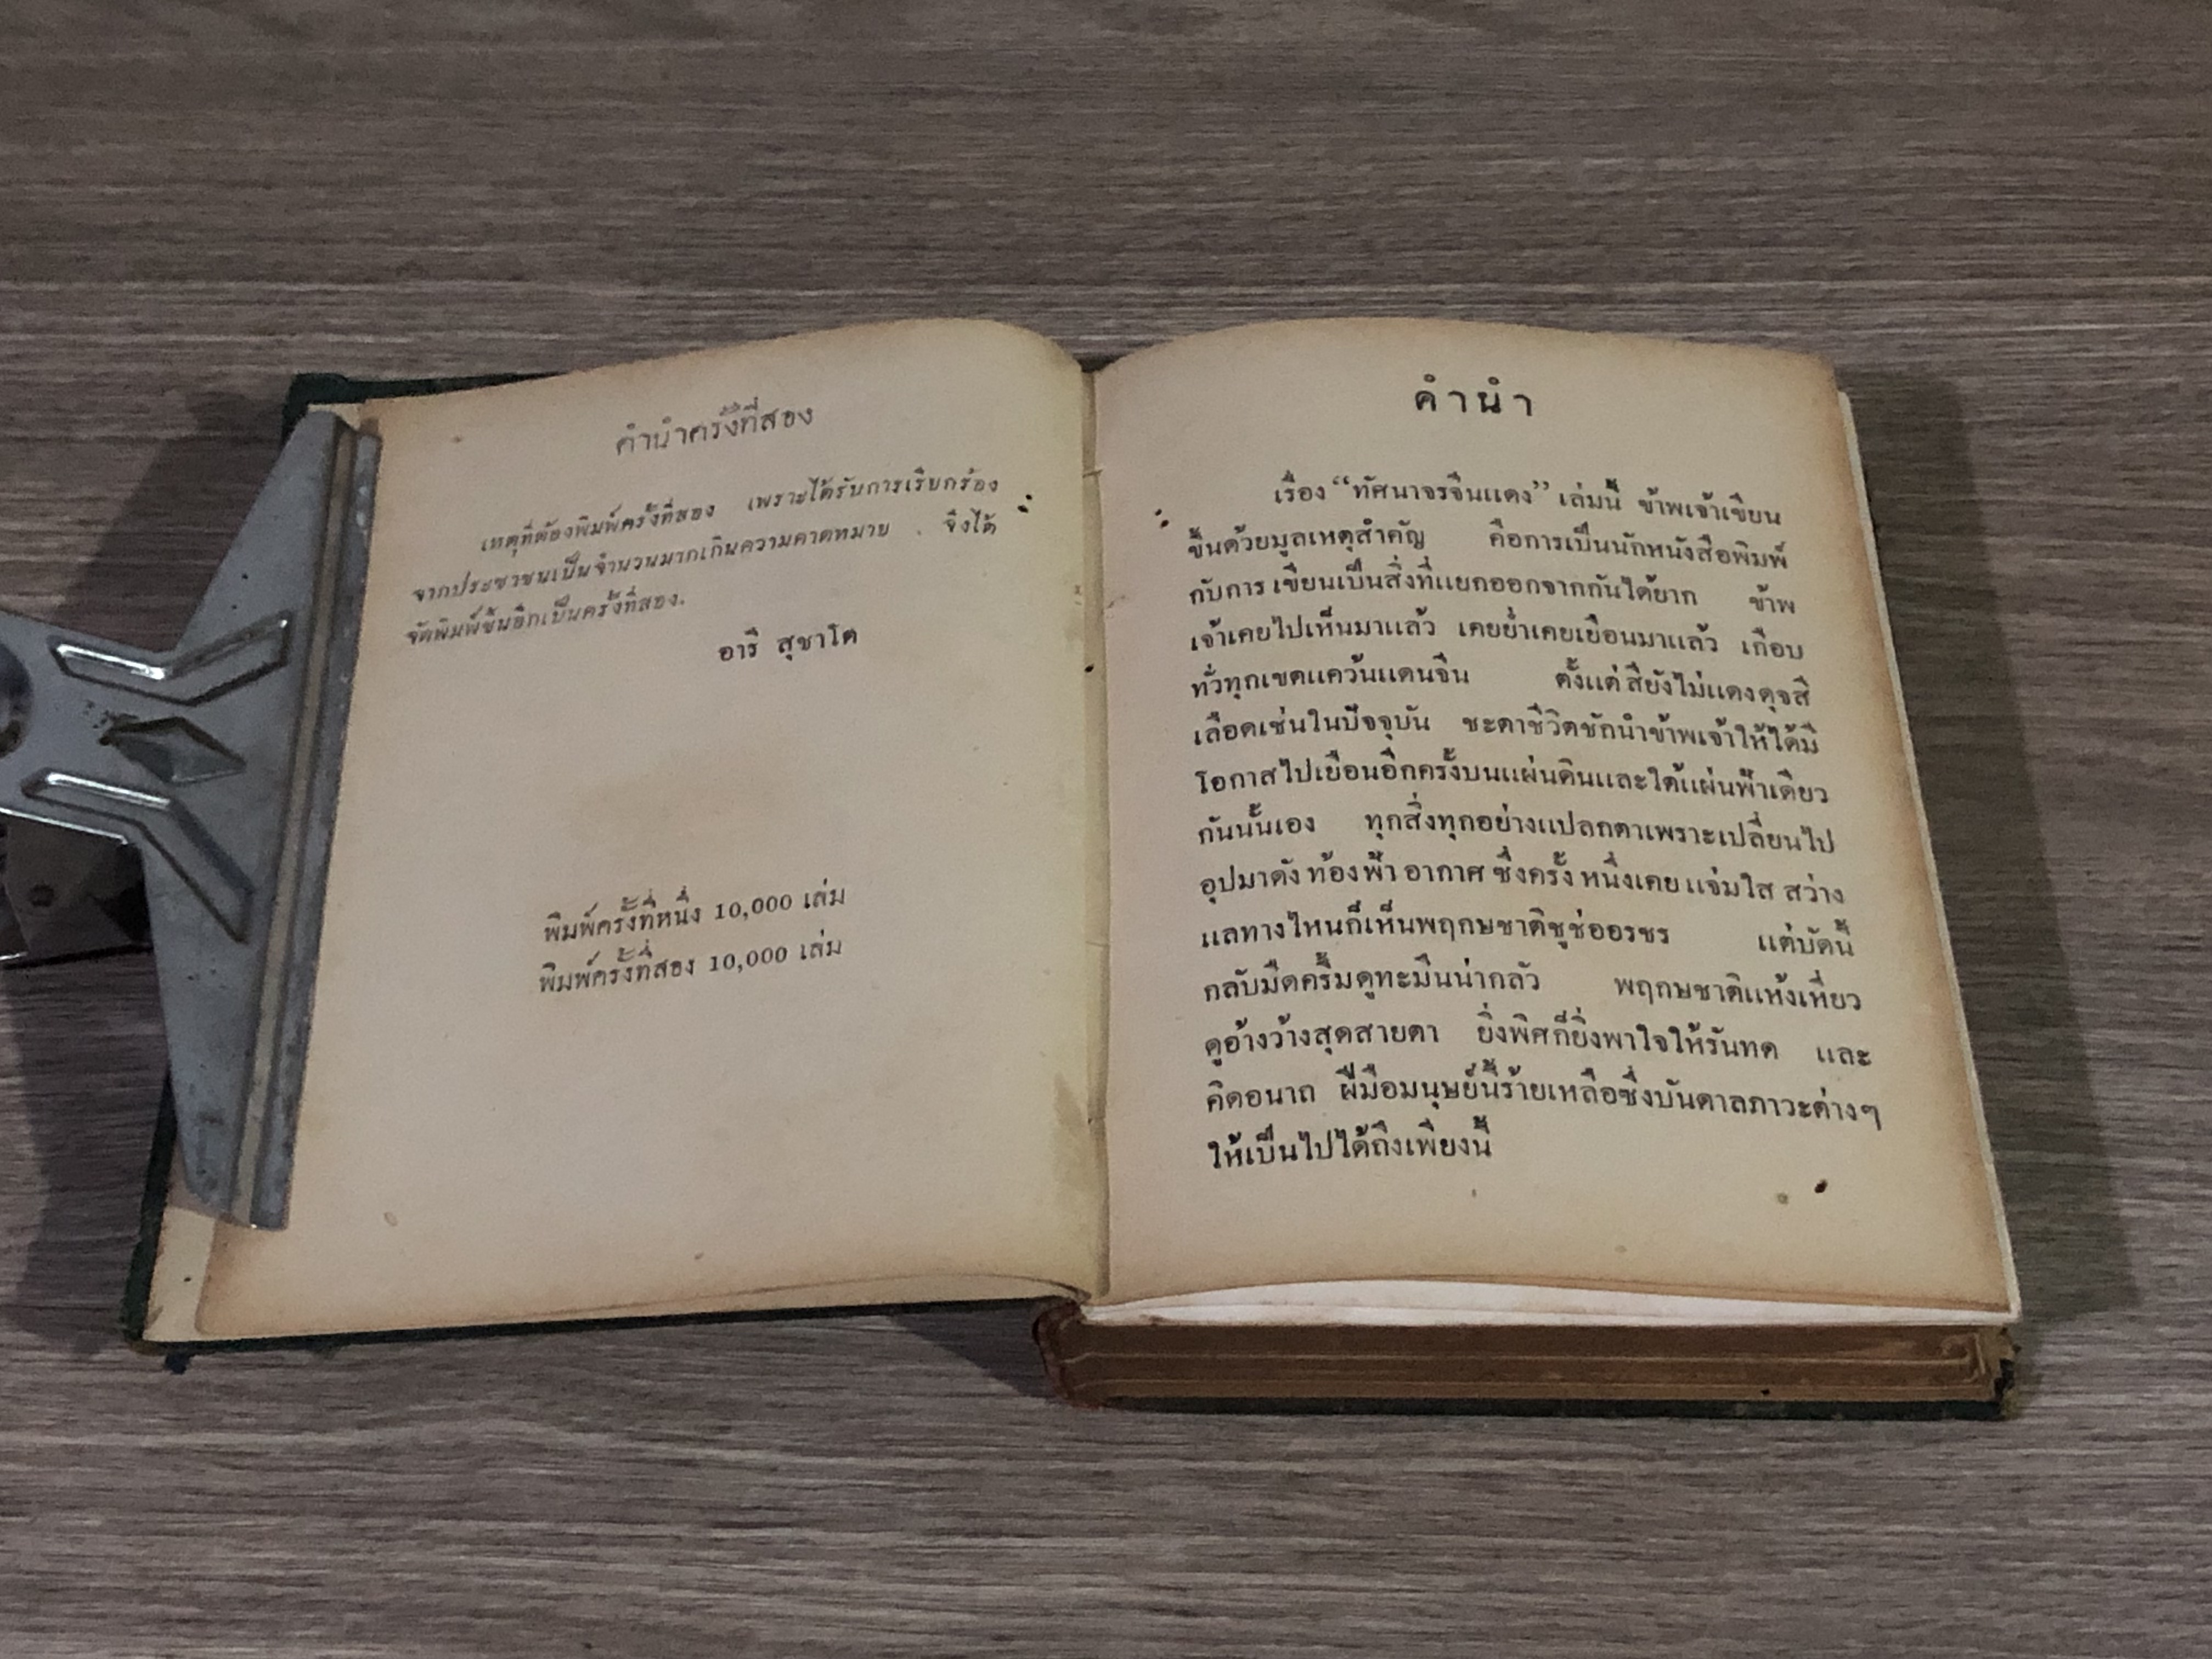 คำนำครั้งที่สอง
เหตุที่ต้องพิมพ์ครั้งที่สอง เพราะได้รับการเรียกร้อง
จากประชาชนเป็นจำนวนมากเกินความคาดหมาย จึงได้
จัดพิมพ์ขึ้นอีกเป็นครั้งที่สอง.
อารี สุชาโต
พิมพ์ครั้งที่หนึ่ง 10,000 เล่ม
พิมพ์ครั้งที่สอง 10,000 เล่ม
คำนำ
เรื่อง “ทัศนาจรจีนแดง” เล่มนี้ ข้าพเจ้าเขียน
ขึ้นด้วยมูลเหตุสำคัญ คือการเป็นนักหนังสือพิมพ์
กับการเขียนเป็นสิ่งที่แยกออกจากกันได้ยาก ข้าพ
เจ้าเคยไปเห็นมาแล้ว เคยย่ำเคยเยือนมาแล้ว เกือบ
ทั่วทุกเขตแคว้นแดนจีน ตั้งแต่สียังไม่แดงดุจสี
เลือดเช่นในปัจจุบัน ชะตาชีวิตชักนำข้าพเจ้าให้ได้มี
โอกาสไปเยือนอีกครั้งบนแผ่นดินและใต้แผ่นฟ้าเดียว
กันนั้นเอง ทุกสิ่งทุกอย่างแปลกตาเพราะเปลี่ยนไป
อุปมาดังท้องฟ้า อากาศ ซึ่งครั้งหนึ่งเคยแจ่มใส สว่าง
แลทางไหนก็เห็นพฤกษชาติชูช่ออรชร แต่บัดนี้
กลับมืดครึ้มดูทะมึนน่ากลัว พฤกษชาติแห้งเหี่ยว
ดูอ้างว้างสุดสายตา ยิ่งพิศก็ยิ่งพาใจให้รันทด และ
คิดอนาถ ฝีมือมนุษย์นี้ร้ายเหลือซึ่งบันดาลภาวะต่างๆ
ให้เป็นไปได้ถึงเพียงนี้